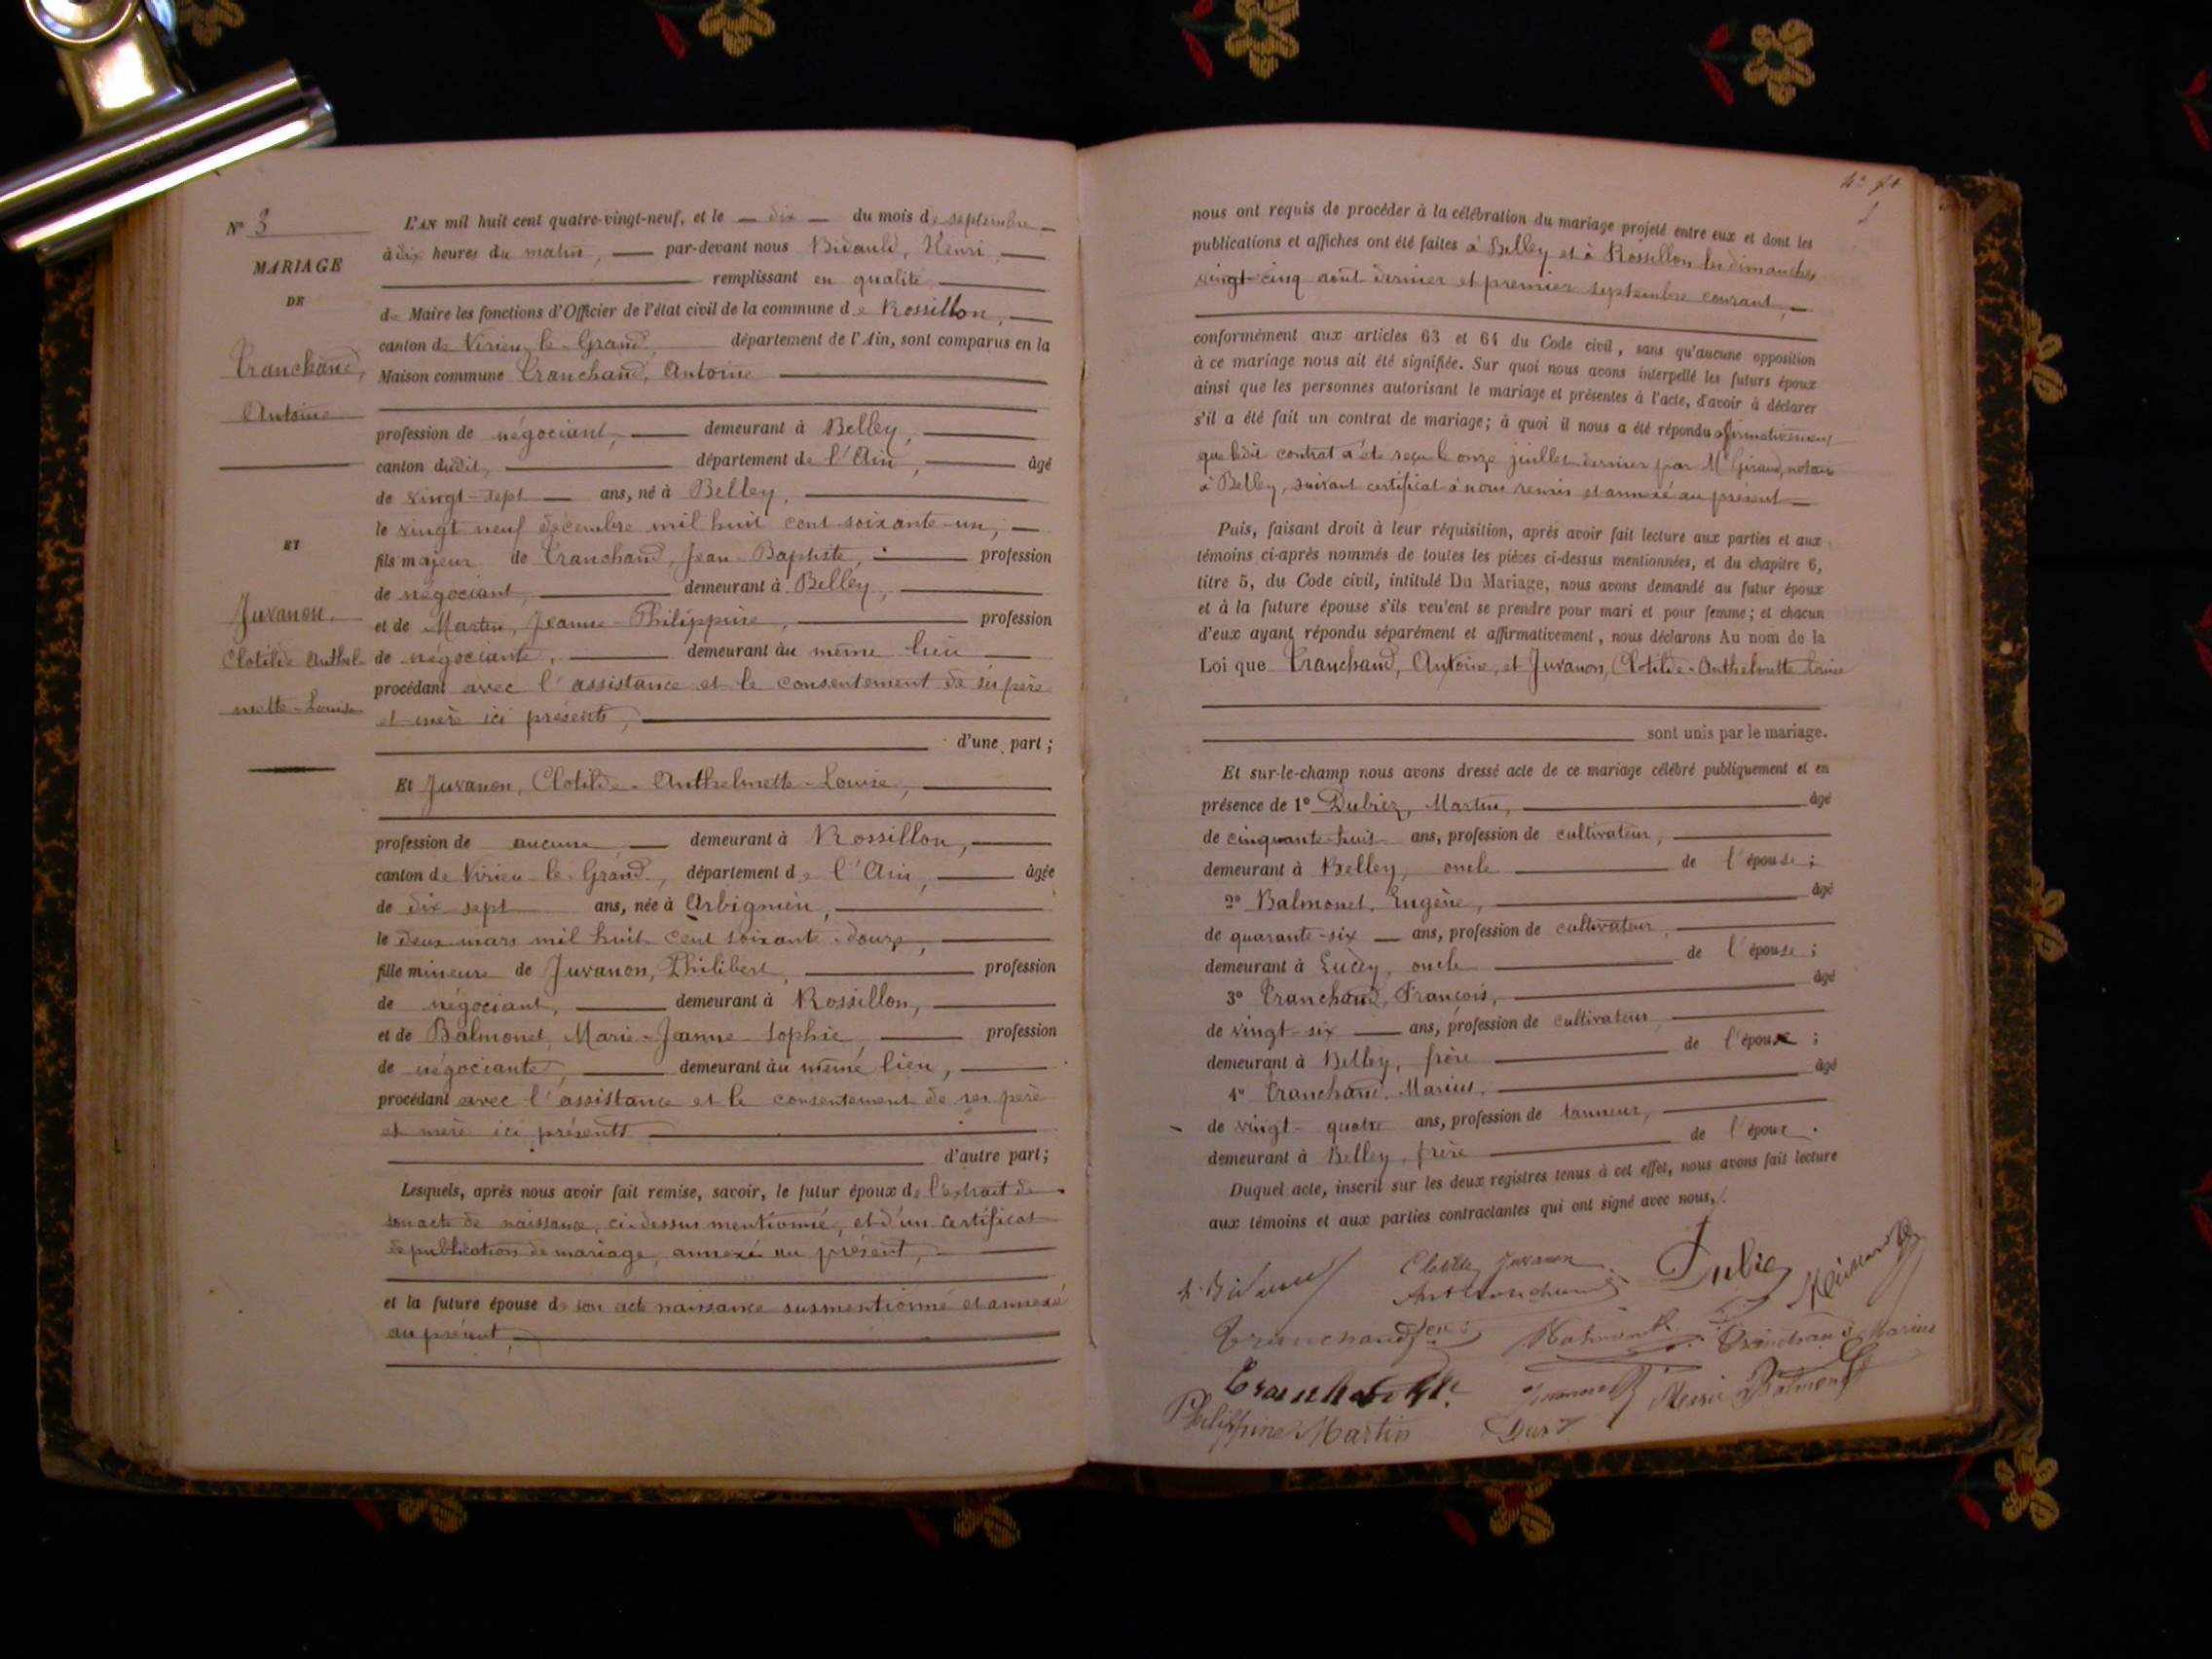 N° 3
MARIAGE
DE
Tranchand,
Antoine
ET
Juvanon,
Clotilde Anthel-
mette-Louise
L'AN mil huit cent quatre-vingt-neuf, et le dix du mois de septembre
à dix heures du matin, par-devant nous Bidauld, Henri,
remplissant en qualité
de Maire les fonctions d'Officier de l'état civil de la commune de Rossillon,
canton de Virieu-le-Grand, département de l'Ain, sont comparus en la
Maison commune Tranchand, Antoine
profession de négociant, demeurant à Belley,
canton dudit, département de l'Ain, âgé
de vingt-sept ans, né à Belley,
le vingt neuf décembre mil huit cent soixante-un,
fils majeur de Tranchand, Jean-Baptiste, profession
de négociant, demeurant à Belley,
et de Martin, Jeanne-Philippine, profession
de négociante, demeurant au même lieu
procédant avec l'assistance et le consentement de ses père
et mère ici présents,
d'une part ;
Et Juvanon, Clotilde-Anthelmette-Louise,
profession de aucune, demeurant à Rossillon,
canton de Virieu-le-Grand, département de l'Ain, âgée
de dix sept ans, née à Arbignieu,
le deux mars mil huit cent soixante-douze,
fille mineure de Juvanon, Philibert, profession
de négociant, demeurant à Rossillon,
et de Balmonet, Marie-Jeanne-Sophie, profession
de négociante, demeurant au même lieu,
procédant avec l'assistance et le consentement de ses père
et mère ici présents
d'autre part ;
Lesquels, après nous avoir fait remise, savoir, le futur époux de l'extrait de
son acte de naissance, ci-dessus mentionné, et d'un certificat
de publication de mariage, annexé au présent,
et la future épouse de son acte naissance susmentionné et annexé
au présent,
nous ont requis de procéder à la célébration du mariage projeté entre eux et dont les
publications et affiches ont été faites à Belley et à Rossillon les dimanches,
vingt-cinq août dernier et premier septembre courant,
conformément aux articles 63 et 64 du Code civil, sans qu'aucune opposition
à ce mariage nous ait été signifiée. Sur quoi nous avons interpellé les futurs époux
ainsi que les personnes autorisant le mariage et présentes à l'acte, d'avoir à déclarer
s'il a été fait un contrat de mariage ; à quoi il nous a été répondu affirmativement
que ledit contrat a été reçu le onze juillet dernier par Me Giraud, notaire
à Belley, suivant certificat à nous remis et annexé au présent
Puis, faisant droit à leur réquisition, après avoir fait lecture aux parties et aux
témoins ci-après nommés de toutes les pièces ci-dessus mentionnées, et du chapitre 6,
titre 5, du Code civil, intitulé Du Mariage, nous avons demandé au futur époux
et à la future épouse s'ils veu'ent se prendre pour mari et pour femme ; et chacun
d'eux ayant répondu séparément et affirmativement, nous déclarons Au nom de la
Loi que Tranchand, Antoine, et Juvanon, Clotilde-Anthelmette Louise
sont unis par le mariage.
Et sur-le-champ nous avons dressé acte de ce mariage célébré publiquement et en
présence de 1° Dubiez, Martin, âgé
de cinquante-huit ans, profession de cultivateur,
demeurant à Belley, oncle de l'épouse ;
2° Balmonet, Eugène, âgé
de quarante-six ans, profession de cultivateur,
demeurant à Lucey, oncle de l'épouse ;
3° Tranchand, François, âgé
de vingt-six ans, profession de cultivateur
demeurant à Belley, frère de l'époux ;
4° Tranchand, Marius, âgé
de vingt-quatre ans, profession de tanneur,
demeurant à Belley, frère de l'époux.
Duquel acte, inscrit sur les deux registres tenus à cet effet, nous avons fait lecture
aux témoins et aux parties contractantes qui ont signé avec nous,
Clotilde Juvanon
Tranchand Marius
Marie Balmonet
Philippine Martin